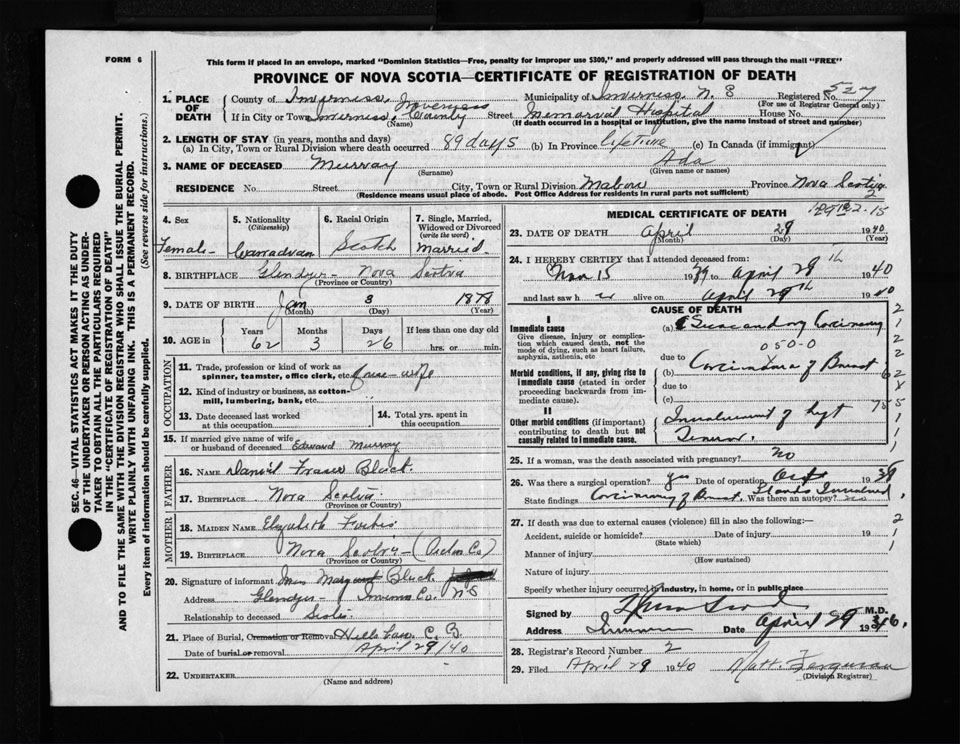 FORM 6
This form if placed in an envelope, marked "Dominion Statistics—Free, penalty for improper use $300," and properly addressed will pass through the mail "FREE"
PROVINCE OF NOVA SCOTIA—CERTIFICATE OF REGISTRATION OF DEATH
SEC. 46—VITAL STATISTICS ACT MAKES IT THE DUTY
OF THE UNDERTAKER OR PERSON ACTING AS UNDER-
TAKER TO OBTAIN ALL THE PARTICULARS REQUIRED
IN THE "CERTIFICATE OF REGISTRATION OF DEATH"
AND TO FILE THE SAME WITH THE DIVISION REGISTRAR WHO SHALL ISSUE THE BURIAL PERMIT.
WRITE PLAINLY WITH UNFADING INK. THIS IS A PERMANENT RECORD.
Every item of information should be carefully supplied. (See reverse side for instructions.)
1. PLACE OF DEATH
County of Inverness, Municipality of Inverness N. S Registered No. 527
(For use of Registrar General only)
If in City or Town Inverness, Inverness County Street Memorial Hospital House No.
(Name) (If death occurred in a hospital or institution, give the name instead of street and number)
2. LENGTH OF STAY (in years, months and days)
(a) In City, Town or Rural Division where death occurred 89 days (b) In Province lifetime (c) In Canada (if immigrant)
3. NAME OF DECEASED Murray Ada
(Surname) (Given name or names)
RESIDENCE No. Street City, Town or Rural Division Mabou Province Nova Scotia
(Residence means usual place of abode. Post Office Address for residents in rural parts not sufficient)
4. Sex Female
5. Nationality (Citizenship) Canadian
6. Racial Origin Scotch
7. Single, Married, Widowed or Divorced (write the word) Married
8. BIRTHPLACE Glendyer - Nova Scotia
(Province or Country)
9. DATE OF BIRTH Jan 3 1878
(Month) (Day) (Year)
10. AGE in Years Months Days If less than one day old
62 3 26 hrs. or min.
OCCUPATION
11. Trade, profession or kind of work as spinner, teamster, office clerk, etc. House-wife
12. Kind of industry or business, as cotton-mill, lumbering, bank, etc.
13. Date deceased last worked at this occupation
14. Total yrs. spent in this occupation
15. If married give name of wife or husband of deceased Edward Murray
FATHER
16. NAME Daniel Fraser Black.
17. BIRTHPLACE Nova Scotia
(Province or Country)
MOTHER
18. MAIDEN NAME Elizabeth Forbes
19. BIRTHPLACE Nova Scotia
(Province or Country)
20. Signature of informant Miss Margaret Black
Address Glendyer - Co. N.S
Relationship to deceased Sister
21. Place of Burial, Cremation or Removal C. B.
Date of burial or removal April 29/40
22. UNDERTAKER
(Name and address)
MEDICAL CERTIFICATE OF DEATH
23. DATE OF DEATH April 29 1940
(Month) (Day) (Year)
24. I HEREBY CERTIFY that I attended deceased from:
Nov 15 1939 to April 29th 1940
and last saw her alive on April 29th 1940
CAUSE OF DEATH
I
Immediate cause (a) Secondary Carcinoma
Give disease, injury or complication which caused death, not the mode of dying, such as heart failure, asphyxia, asthenia, etc
050-0
due to
Morbid conditions, if any, giving rise to immediate cause (stated in order proceeding backwards from immediate cause). (b) Carcinoma of Breast
due to
(c)
II
Other morbid conditions (if important) contributing to death but not causally related to immediate cause. Involvement of left
25. If a woman, was the death associated with pregnancy? no
26. Was there a surgical operation? yes Date of operation Oct 1938
State findings Carcinoma of Breast, Glands Involved. Was there an autopsy?
27. If death was due to external causes (violence) fill in also the following:—
Accident, suicide or homicide? Date of injury 19
(State which)
Manner of injury
(How sustained)
Nature of injury
Specify whether injury occurred in industry, in home, or in public place
Signed by M.D.
Address Date April 29 19
28. Registrar's Record Number 2
29. Filed April 29 1940 Matt. Ferguson
(Division Registrar)